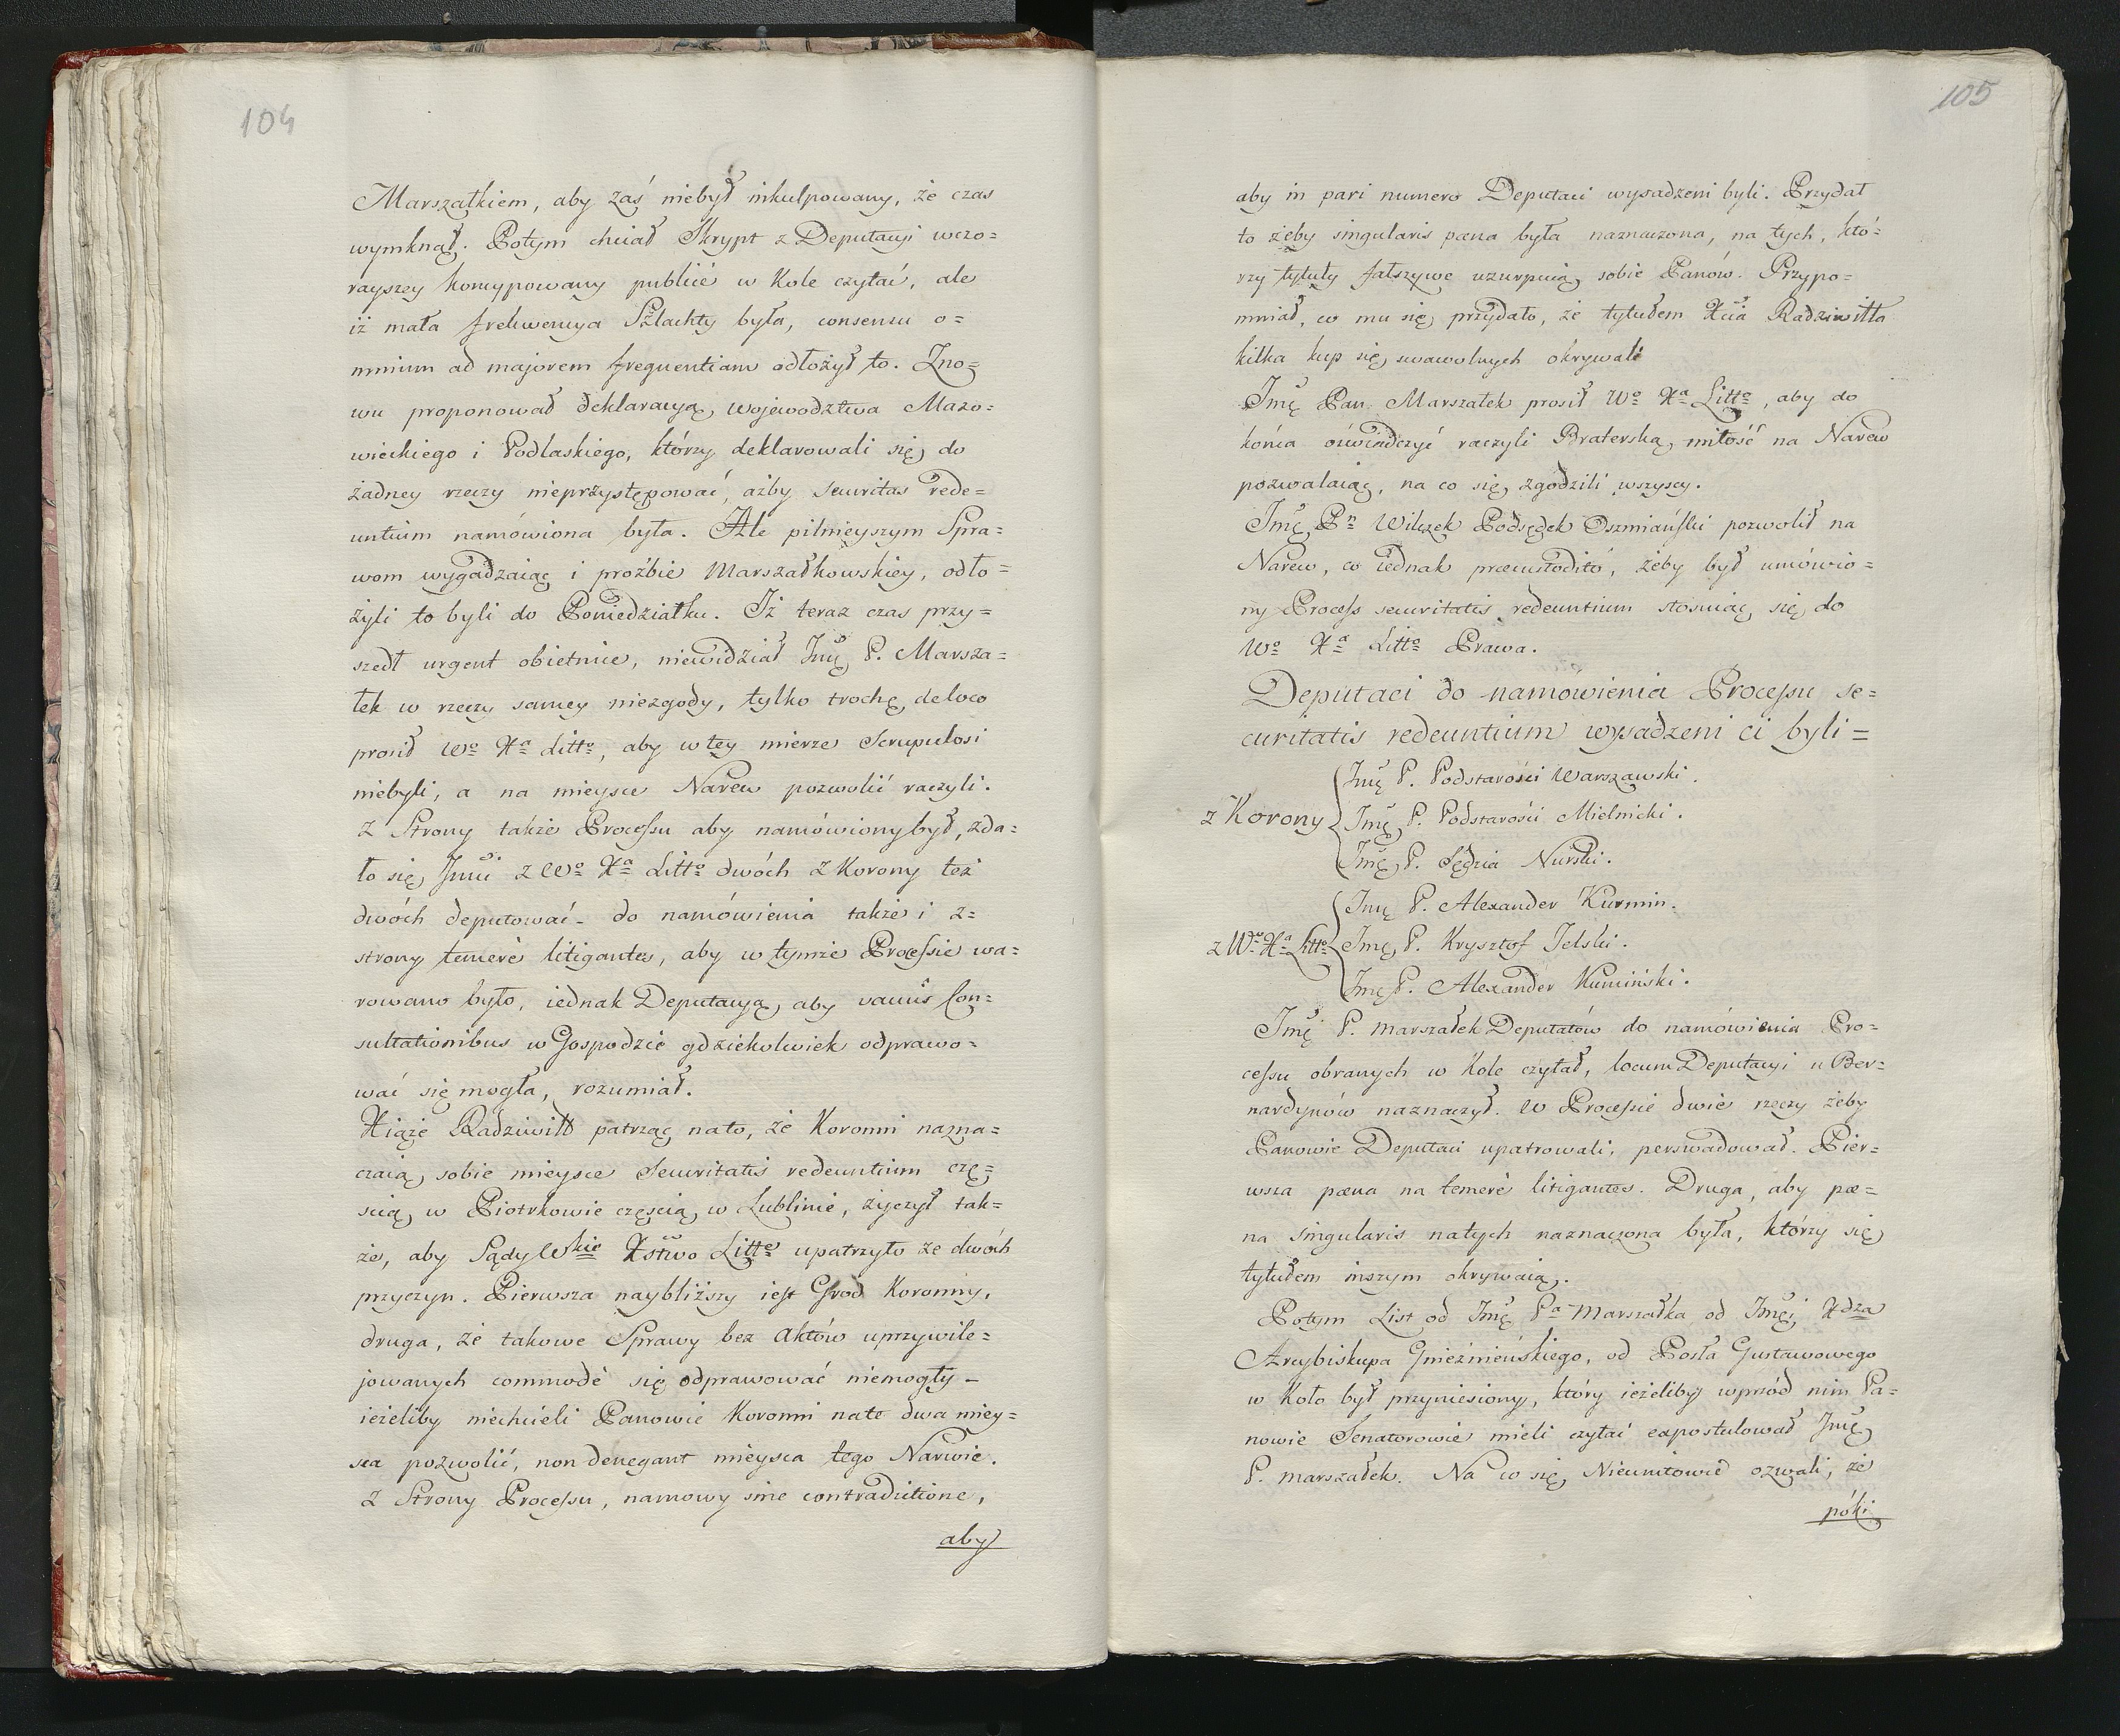 104
Marszałkiem, aby zaś niebył inkulpowany, że czas
wymknął. Potym chciał Skrypt z Deputacyi wczo=
rayszey koncypowany publice w Kole czytać, ale
iż mała frekwencya Szlachty była, consensu o=
mnium ad majorem frequentiam odłożył to. Zno=
wu proponował deklaracyą, Wojewodztwa Mazo=
wieckiego i Podlaskiego, którzy deklarowali się, do
żadney rzeczy nieprzystępować, ażby securitas rede=
untium namówiona była. Ale pilnieyszym Spra=
wom wygadzaiąc i proźbie Marszałkowskiey, odło=
żyli to byli do Poniedziałku. Iż teraz czas przy=
szedł urgent obietnice, niewidział Jmć P. Marsza=
łek w rzeczy samey niezgody, tylko trochę, de loco
prosił Wo Xa Litto, aby w tey mierze Scrupulosi
niebyli, a na mieysce Narew pozwolić raczyli.
Z Strony także Processu aby namówiony był, zda=
ło się, Jmći z Wo Xa Litto dwóch z Korony też
dwóch deputować – do namówienia także i z=
strony temerè litigantes, aby w tymże Processie wa=
rowano było, iednak Deputacyą, aby variis Con=
sultationibus w Gospodzie gdziekolwiek odprawo=
wać się mogła, rozumiał.
Xiąże Radziwiłł patrząc na to, że Koronni nazna=
czaią, sobie mieysce Securitatis redeuntium czę=
scią, w Piotrkowie częścią, w Lublinie, życzył tak=
że, aby Sądy Wkie Xstwo Litto upatrzyło ze dwóch
przyczyn. Pierwsza naybliższy iest Gród Koronny,
druga, że takowe Sprawy bez aktów uprzywile=
jowanych commodè się odprawować niemogły –
ieżeliby niechcieli Panowie Koronni na te dwa miey=
sca pozwolić, non denegant mieysca tego Narwie.
Z Strony Processu, namowy sine contradictione,
aby
105
aby in pari numero Deputaci wysadzeni byli. Przydał
to żeby singularis pœna była naznaczona, na tych, któ=
rzy tytuły fałszywe uzurpuią, sobie Panów. Przypo=
mniał, co mu się, przydało, że tytułem Xcia Radziwiłła
kilka kup się, swawolnych okrywali
Jmć Pan Marszałek prosił Wo Xa Litto, aby do
końca oświadczyć raczyli Braterską, miłość na Narew
pozwalaiąc, na co się, zgodzili wszyscy.
Jmć Pn Wilczek Podsędek Oszmiański pozwolił na
Narew, co iednak præcustodito, żeby był umówio=
ny Process securitatis redeuntium stosuiąc, się, do
Wo Xa Litto Prawa.
Deputaci do namówienia Processu se=
curitatis redeuntium wysadzeni ci byli =
Jmć P. Podstarości Warszawski.
z Korony Jmć P. Podstarości Mielnicki.
Jmć P. Sędzia Nurski.
Jmć P. Alexander Kurmin.
z Wo Xa Litto Jmć P. Krysztof Jelski.
Jmć P. Alexander Kumiński.
Jmć P. Marszałek Deputatów do namówienia Pro=
cessu obranych w Kole czytał, locum Deputacyi u Ber=
nardynów naznaczył. W Processie dwie rzeczy żeby
Panowie Deputaci upatrowali, perswadował. Pier=
wsza pœna na temerè litigantes. Druga, aby pœ=
na singularis na tych naznaczona była, którzy się,
tytułem inszym okrywaią.
Potym List od Jmć Pa Marszałka od Jmći Xdza
Arcybiskupa Gnieźnieńskiego, od Posła Gustawowego
w Koło był przyniesiony, który ieżeliby wprzód nim Pa=
nowie Senatorowie mieli czytać expostulował Jmć
P. Marszałek. Na co się, Nieunitowie ozwali, że
póki